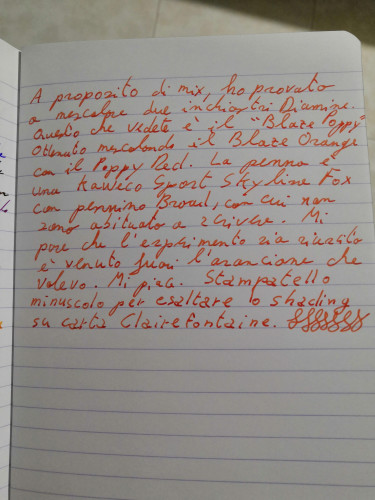 A proposito di mix, ho provato
a mescolare due inchiostri Diamine.
Questo che vedete è il "Blaze Poppy"
ottenuto mescolando il Blaze Orange
con il Poppy Red. La penna è
una Kaweco Sport Skyline Fox
con pennino Broad, con cui non
sono abituato a scrivere. Mi
pare che l'esperimento sia riuscito
è venuto fuori l'arancione che
volevo. Mi piace. Stampatello
minuscolo per esaltare lo shading
su carta Clairefontaine.